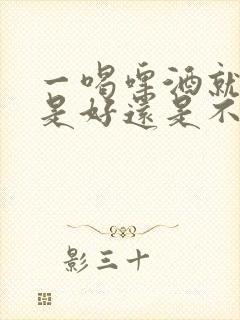 一喝啤酒就
是好還是不
影三十